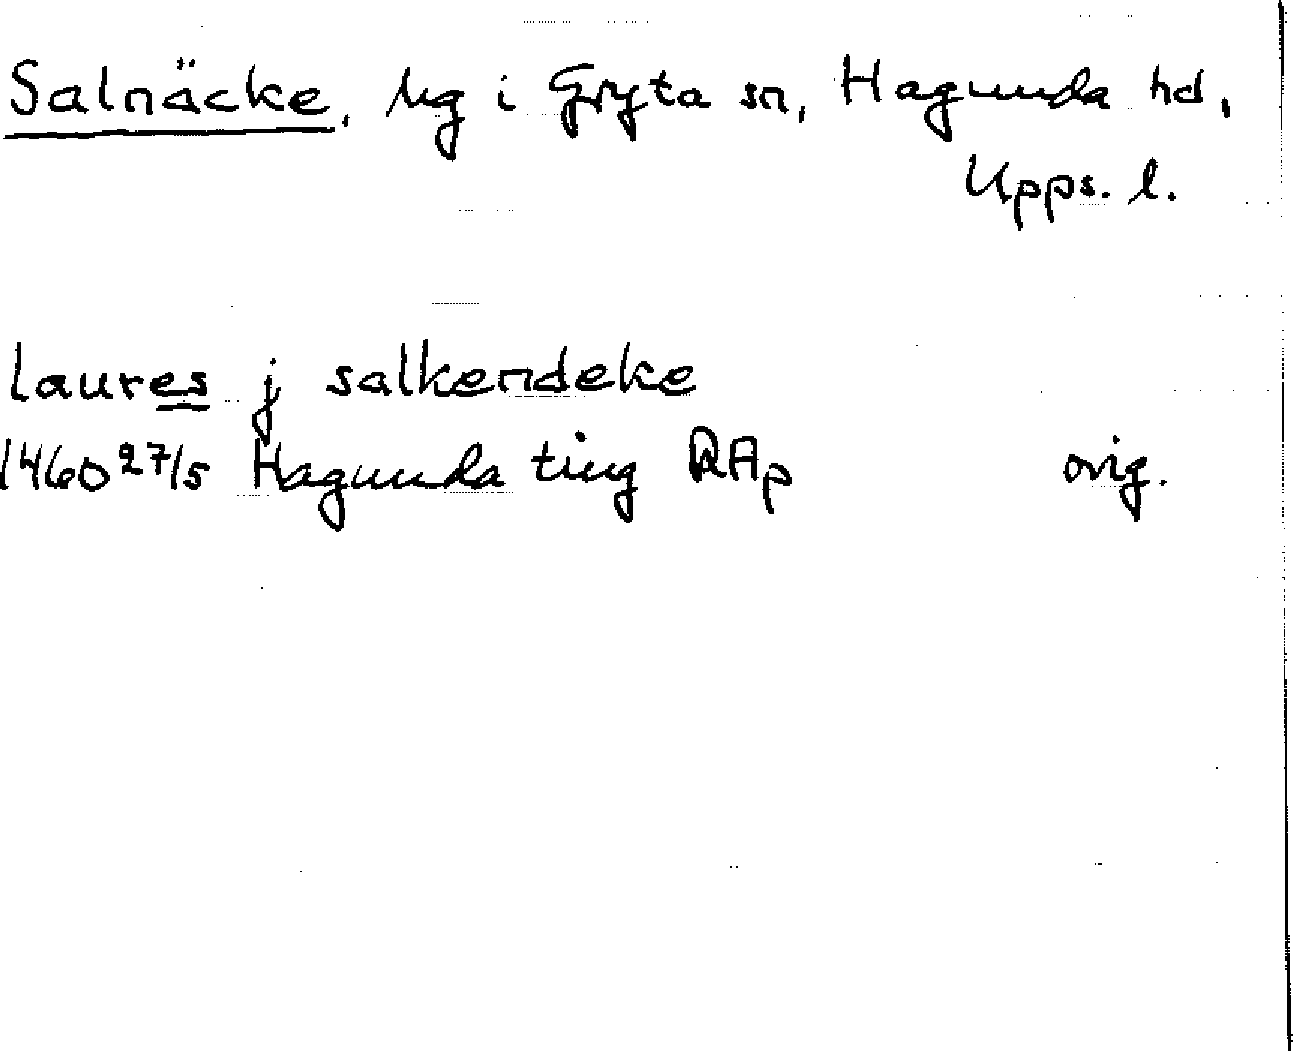 Salnäcke, hg i Gryta sn, Hagunda hd,
Upps. l.
laures j salkendeke
1460 27/5 Hagunda ting RAp orig.